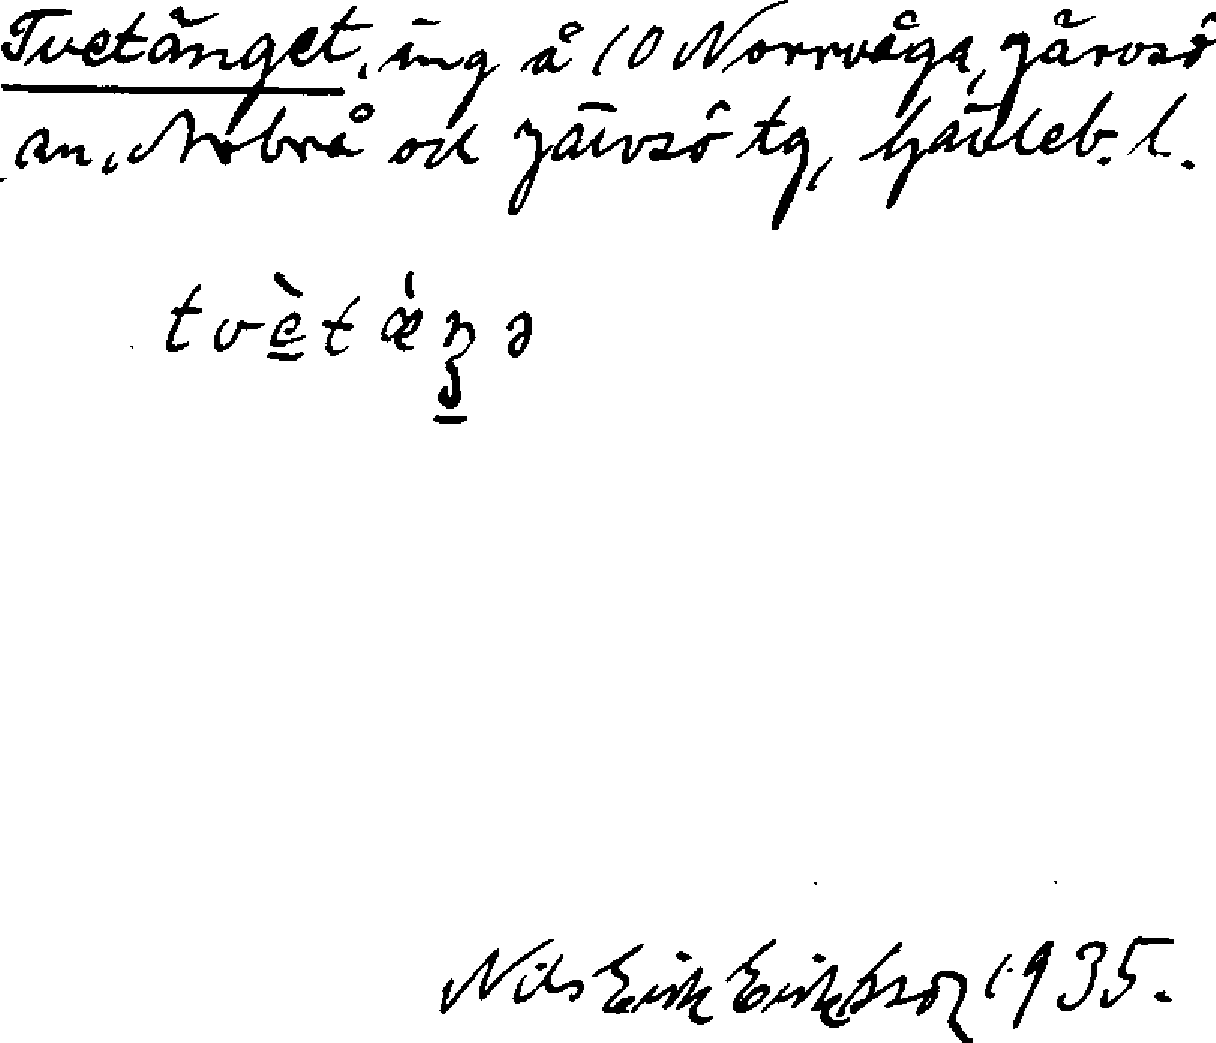 Tvetänget, äng å 10 Norrvåga, Järvsö
sn, Arbrå och Järvsö tg, Gävleb. l.
tvètǽŋə
Nils Erik Eriksson 1935.